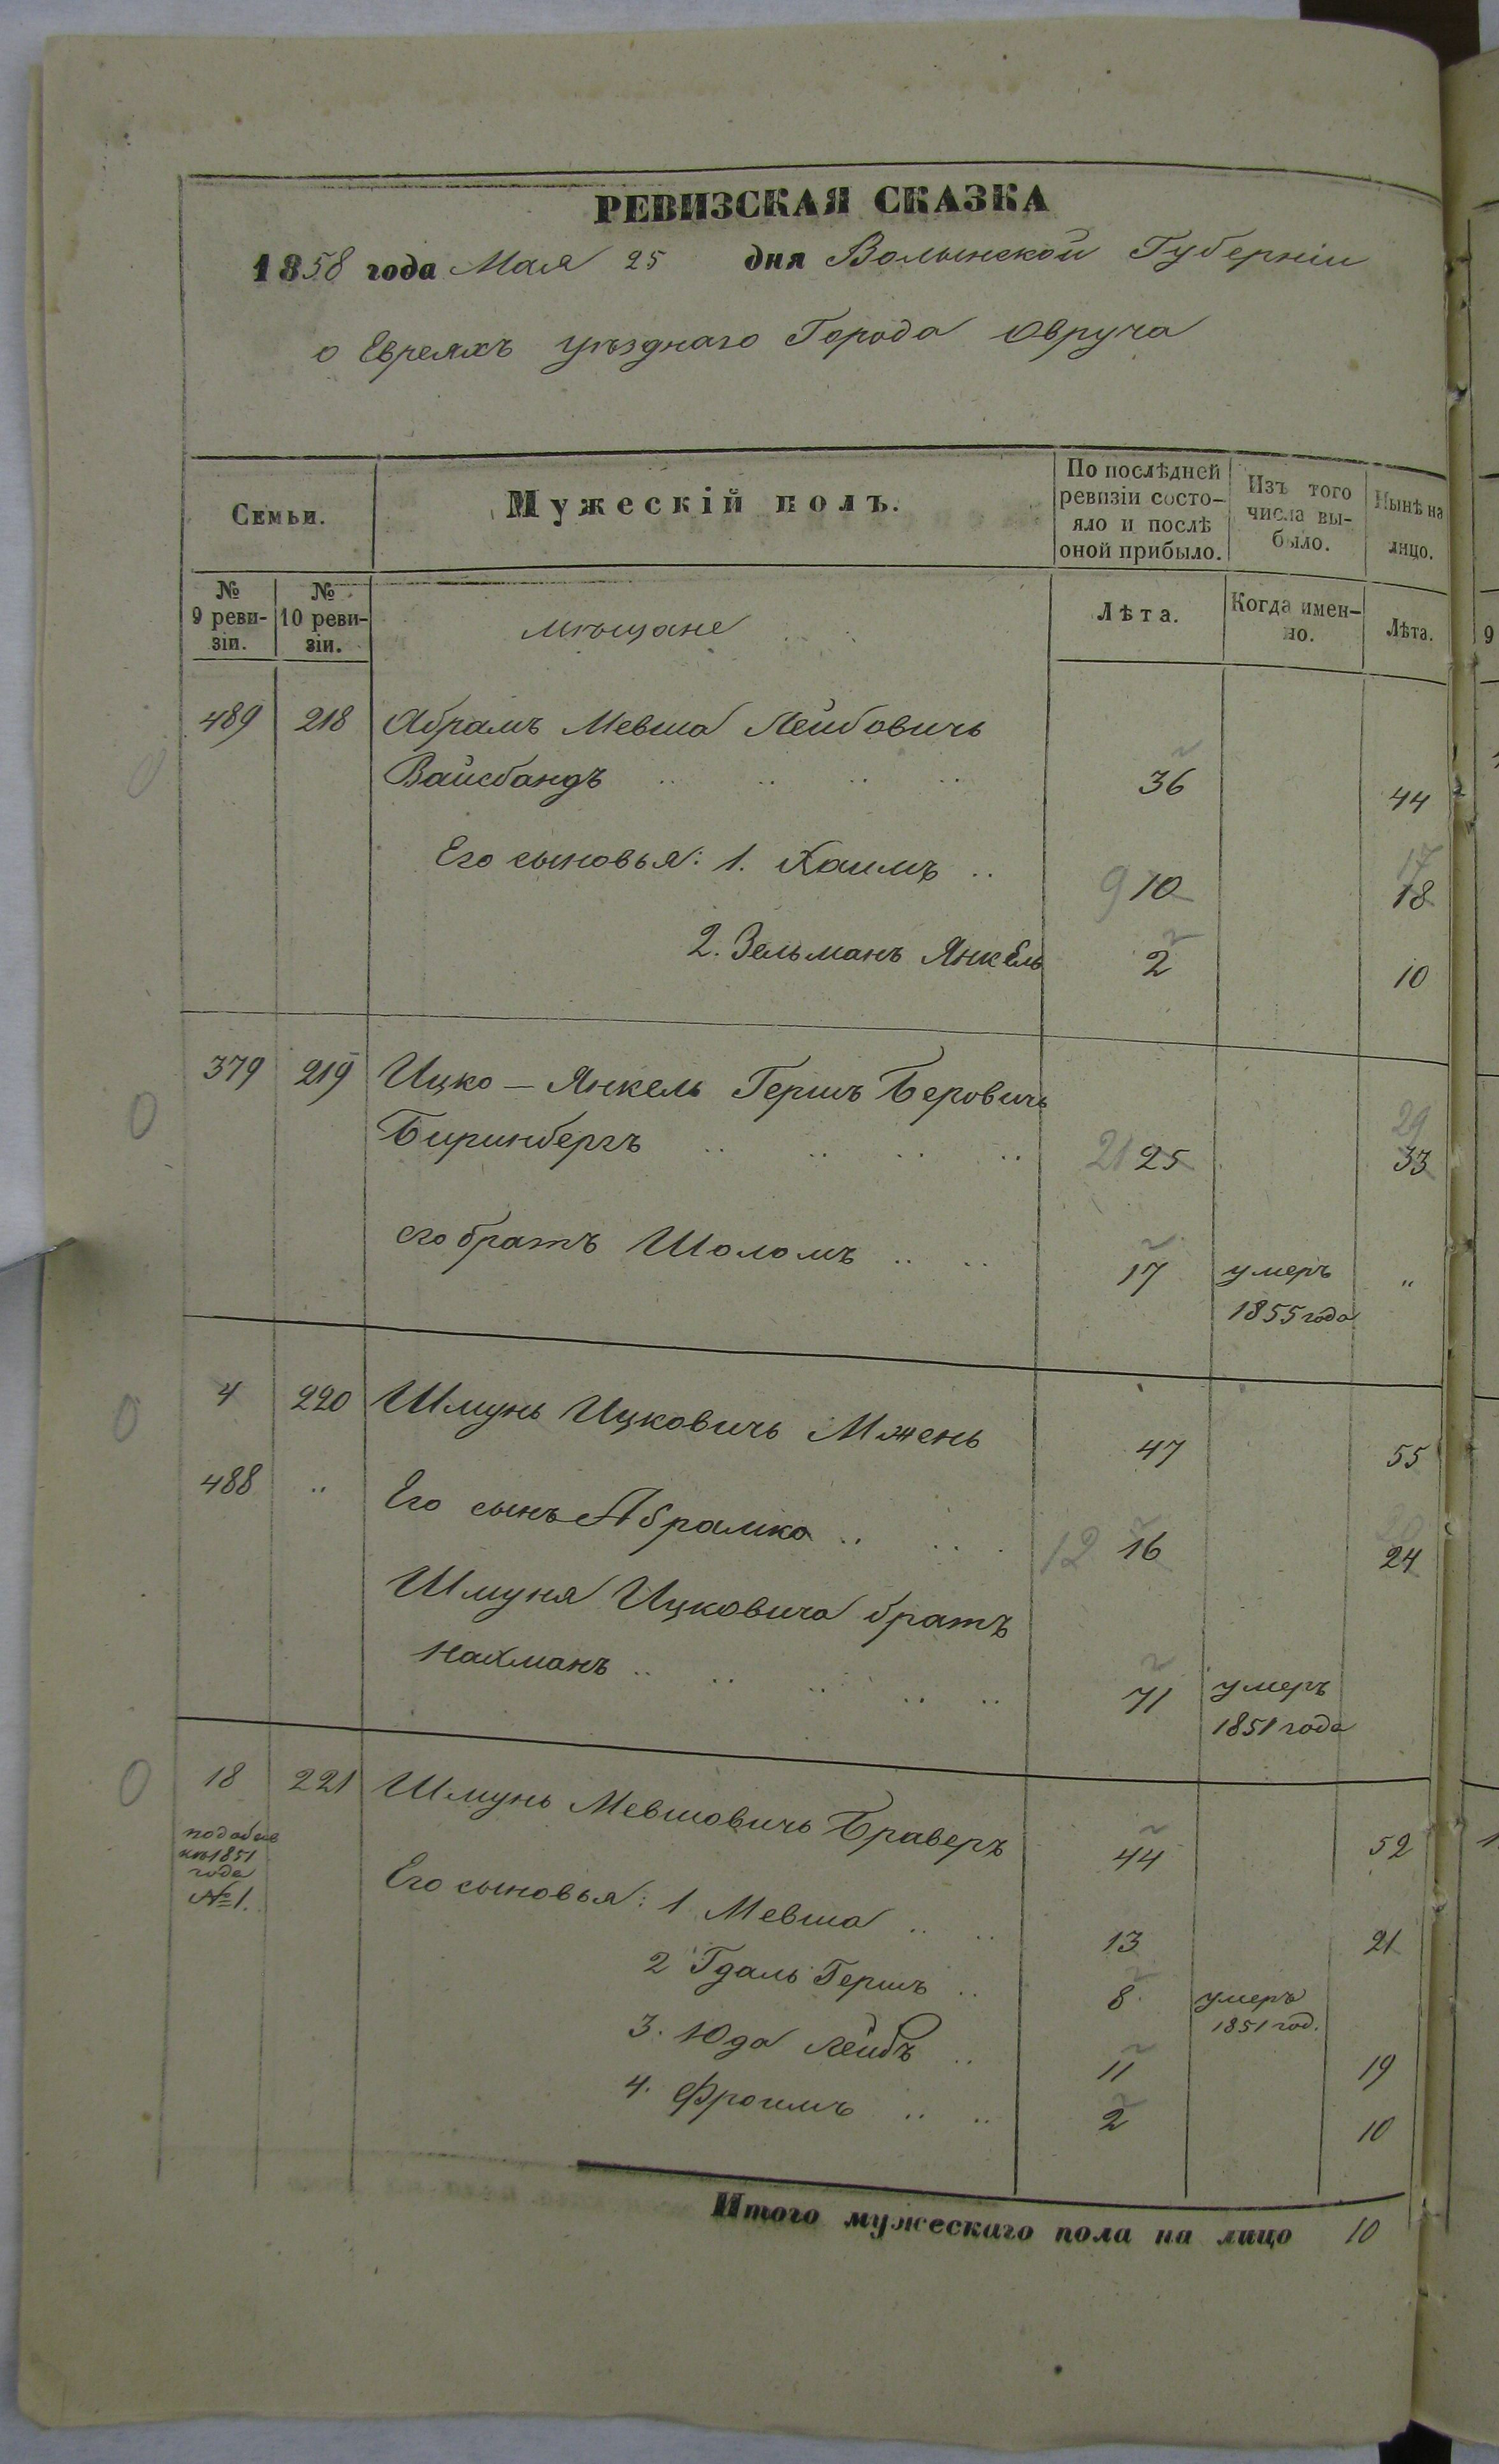 РЕВИЗСКАЯ СКАЗКА
1858 года Мая 25 дня Волынской Губерніи
о Евреяхъ уѣзднаго Города Овруча
Семьи.
Мужескій полъ.
По послѣдней ревизіи состо-
яло и послѣ оной прибыло.
Изъ того числа вы-
было.
Нынѣ на лицо.
№ 9 реви-
зіи.
№ 10 реви-
зіи.
мѣщане
Лѣта.
Когда имен-
но.
Лѣта.
489 218 Абрамъ Мевша Лейбовичь
Вайсбандъ .. .. .. .. 36 44
Его сыновья: 1. Хаимъ .. 9 10 17 18
2. Зельманъ Янкель 2 10
379 219 Ицко — Янкель Гершъ Беровичь
Биринбергъ .. .. .. .. 21 25 29 33
его братъ Шоломъ .. .. 17 умеръ 1855 года "
4 220 Шмунь Ицковичь Мжень 47 55
488 .. Его сынъ Абрамко .. .. 12 16 20 24
Шмуня Ицковича братъ
Нахманъ .. .. .. .. .. 71 умеръ 1851 года
18 221 Шмунь Мевшовичь Браверъ 44 52
1851
года
№ 1.
Его сыновья: 1 Мевша .. .. 13 21
2 Гдаль Гершъ .. 8 умеръ 1851 год.
3. Юда Лейбъ .. 11 19
4. Фроимъ .. .. 2 10
Итого мужескаго пола на лицо 10